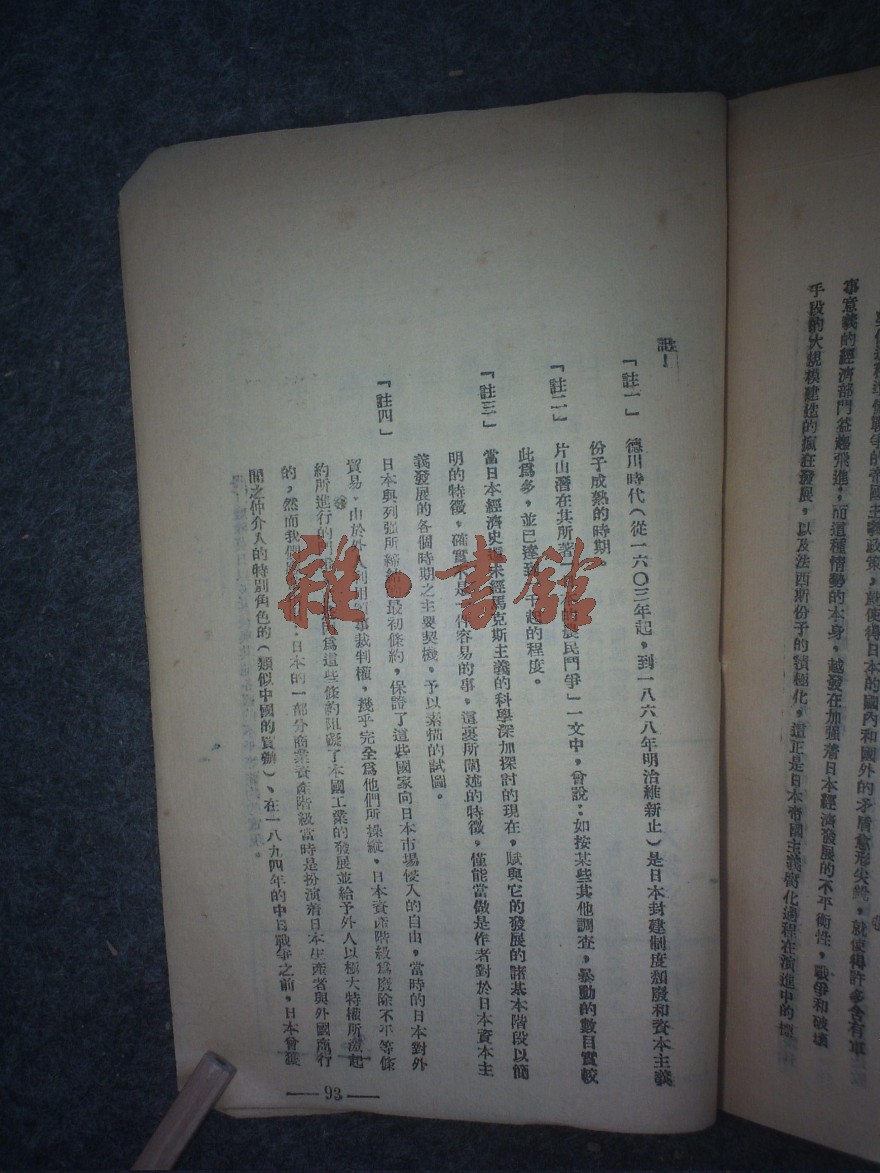 事意義的經濟部門益趨飛進，而這種情勢的本身，越發在加強着日本經濟發展的不平衡性，戰爭和破壞
手段的大規模建造的瘋狂發展，以及法西斯份子的積極化，這正是日本帝國主義腐化過程在演進中的
註！
「註一」 德川時代（從一六〇三年起，到一八六八年明治維新止）是日本封建制度頹廢和資本主義
份子成熟的時期。
「註二」 片山潛在其所著「 農民鬥爭」一文中，曾說：如按某些其他調查，暴動的數目實較
此爲多，並已達到 起的程度。
「註三」 當日本經濟史還未經馬克斯主義的科學深加探討的現在，賦與它的發展的諸基本階段以簡
明的特徵，確實不是 件容易的事，這裏所闡述的特徵，僅能當做是作者對於日本資本主
義發展的各個時期之主要契機，予以素描的試圖。
「註四」 日本與列強所締結 最初條約，保證了這些國家向日本市場侵入的自由，當時的日本對外
貿易，由於外人 裁判權，幾乎完全爲他們所操縱，日本資產階級爲廢除不平等條
約所進行的 因爲這些條約阻礙了本國工業的發展並給予外人以極大特權所激起
的，然而我們 ：日本的一部分商業資產階級當時是扮演着日本生產者與外國商行
間之仲介人的特別角色的（類似中國的買辦）、在一八九四年的中日戰爭之前，日本曾獲
—93—
雜·書館